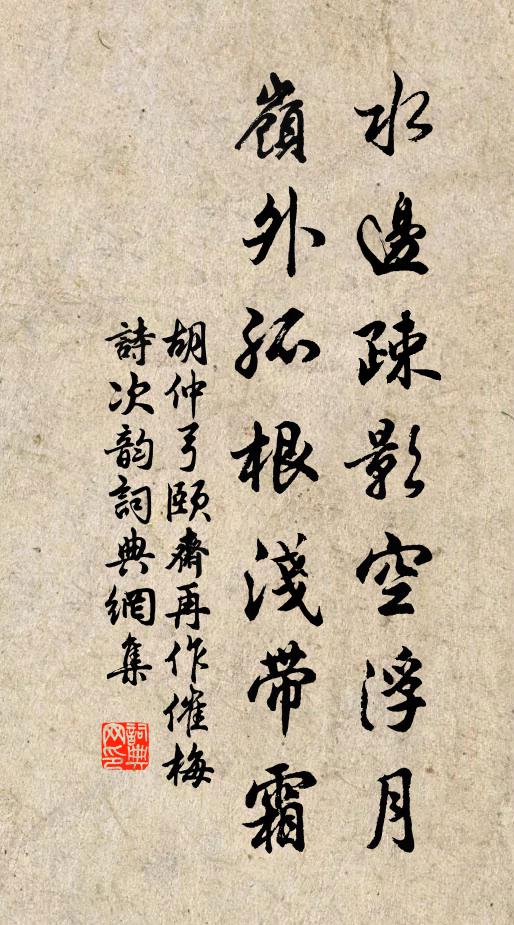 水邊疎影空浮月
嶺外孤根淺帶霜
胡仲弓頤齋再作催梅
詩次韵詞典網集
詞典网印